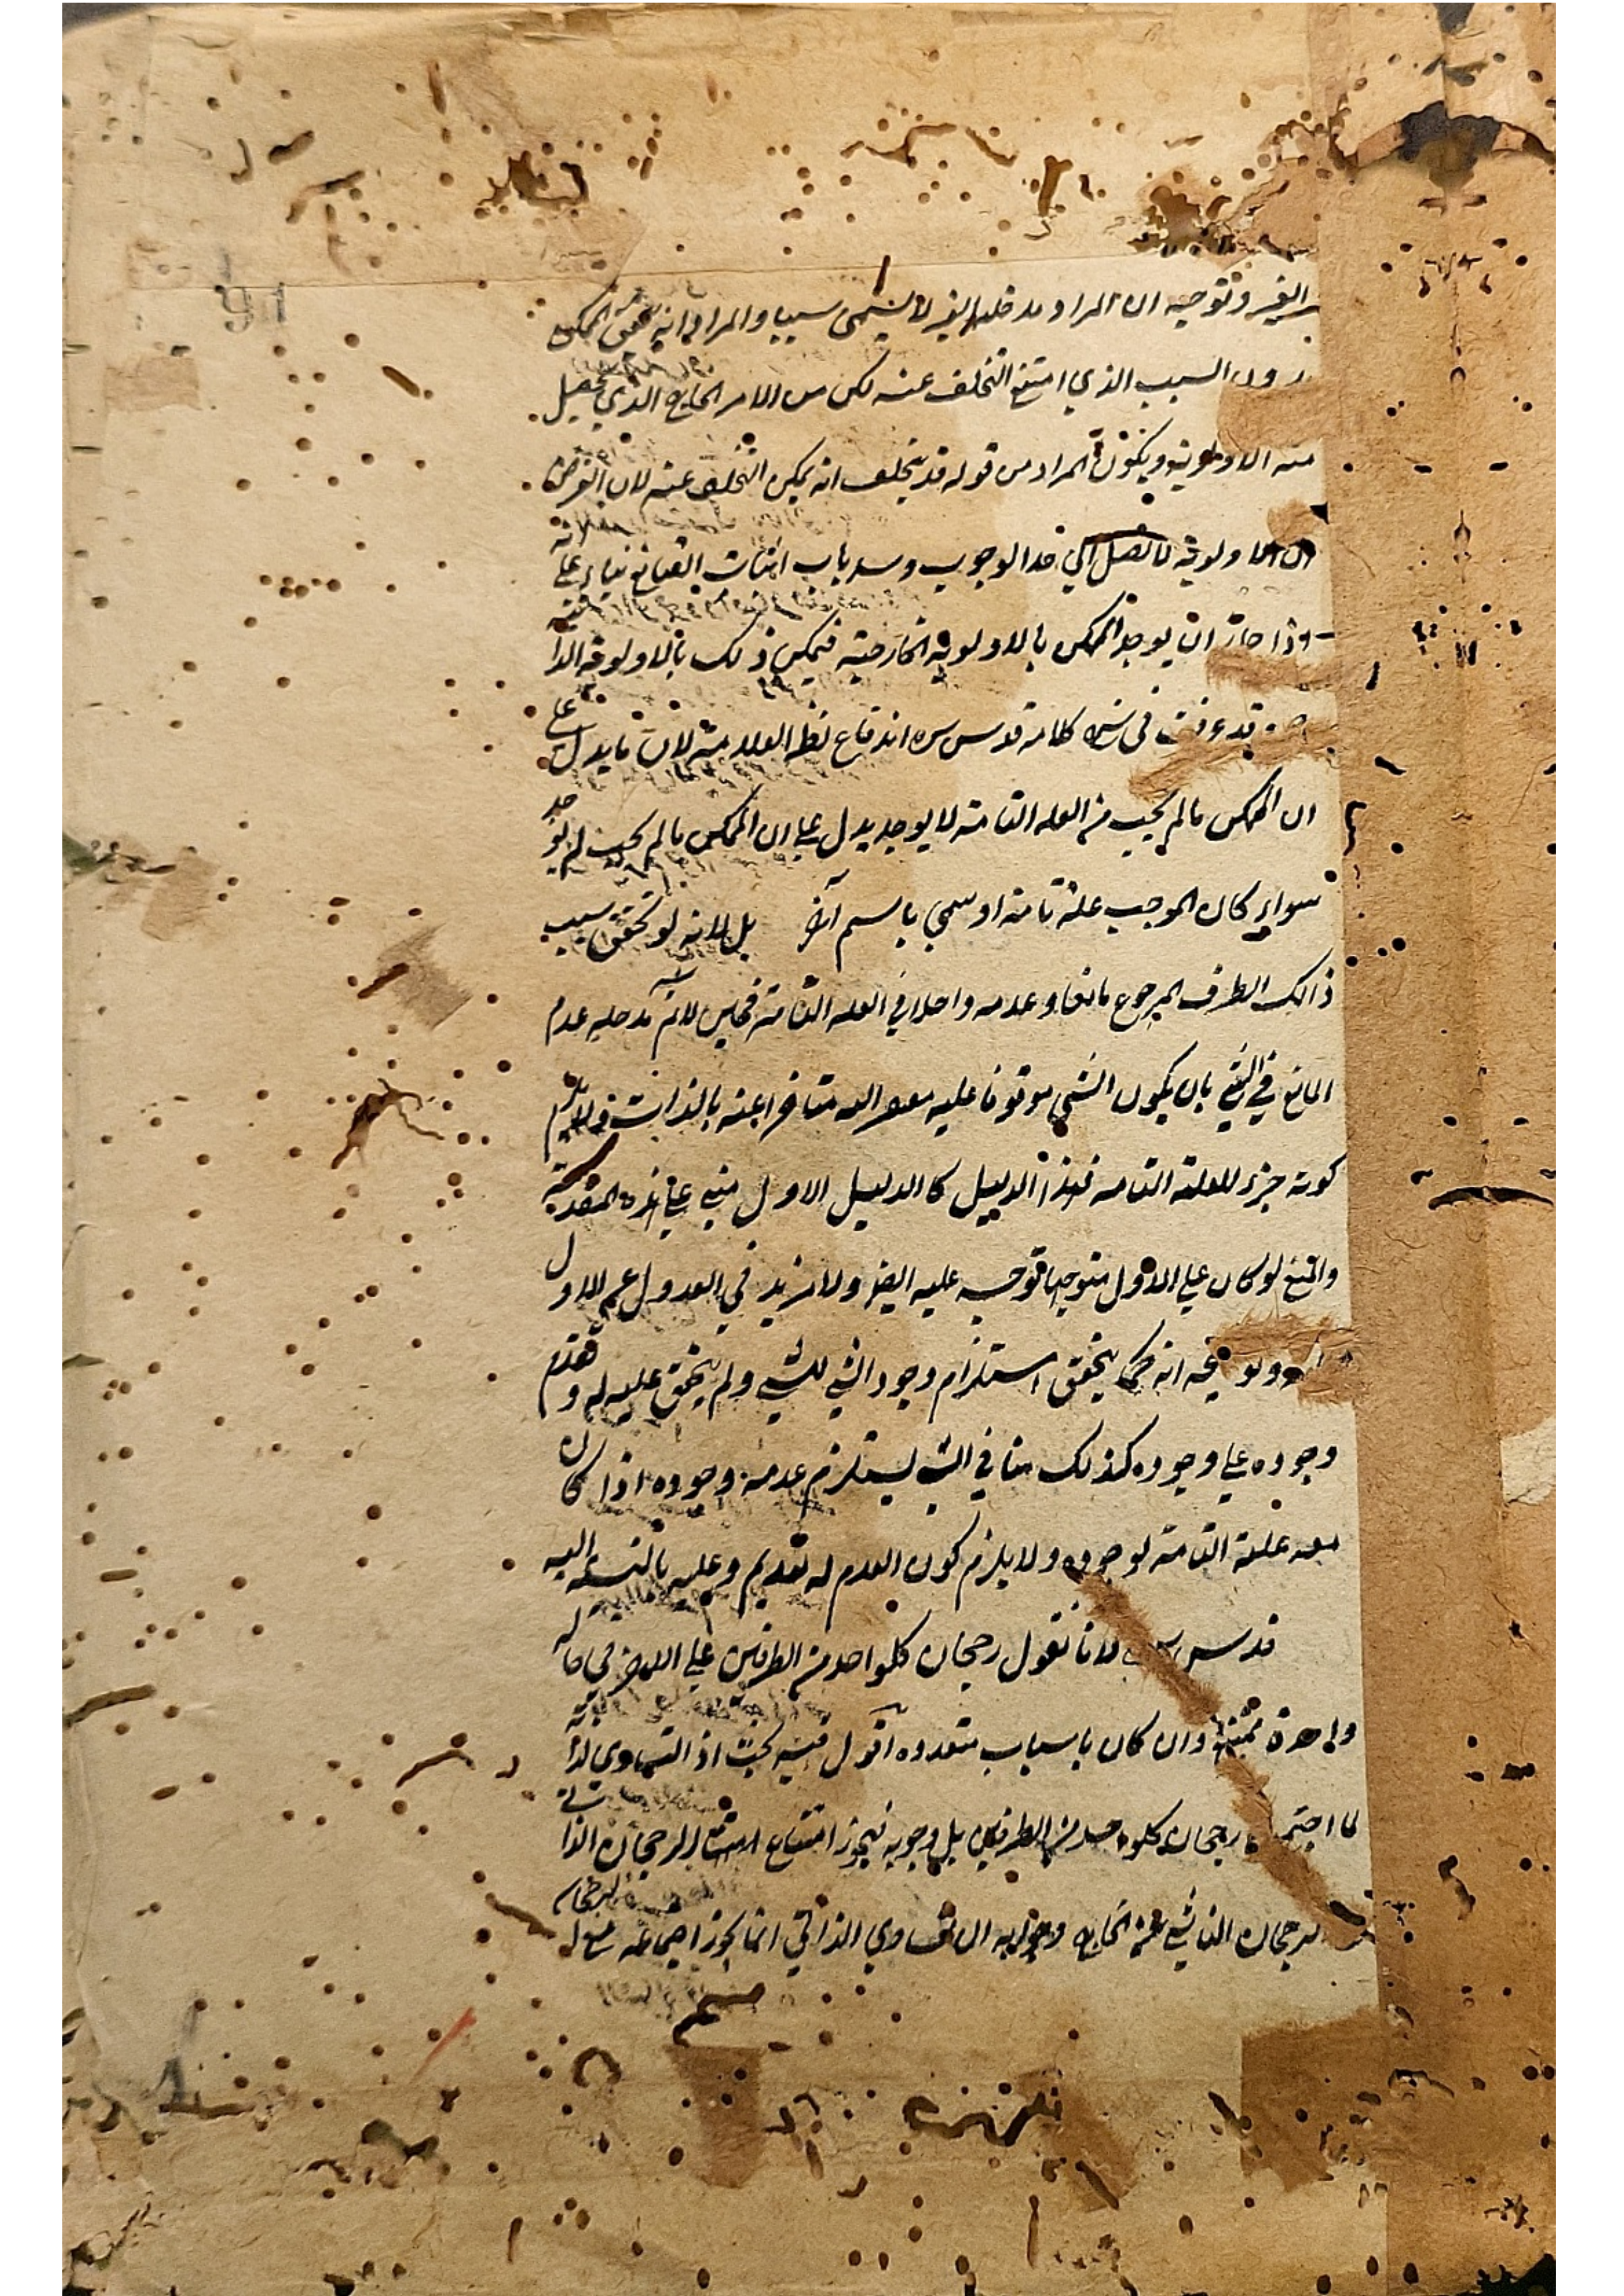 الغير وتوجيه ان المراد مدخلية الغير لا يسمى سببا والمراد انه تحقق الممكن
دون السبب الذي امتنع التخلف عنه لكن من الامر الخارج الذي يحصل
منه الاولوية ويكون المراد من قوله قد يتخلف انه يمكن التخلف عنه لان الفرض
ان الاولوية لا تصل الي حد الوجوب وسد باب اثبات الصانع بناء علي انه
اذا جاز ان يوجد الممكن بالاولوية الخارجية فيمكن ذلك بالاولوية الذاتية
قد عرفت في كلامه قدس سره اندفاع نظر العلامة لان ما يدل علي
ان الممكن ما لم يجب من العله التامة لا يوجد يدل علي ان الممكن ما لم يجب لم يوجد
سواء كان الموجب علة تامة او سمي باسم آخر بل لانه لو تحقق سبب
ذالك الطرف المرجوح مانعا وعدمه داخلا في العله التامة فحاين لانم مدخليه عدم
المانع في الشي بان يكون الشي موقوفا عليه متاخرا عنه بالذات فلا يلزم
كونه جزء للعلة التامه فهذا الدليل كالدليل الاول مبني علي هذه المقدمة
والمنع لو كان علي الاول متوجها توجه عليه ايضا ولا مزيد في العدول عن الاول
انه كما يتحقق استلزام وجود الشي للشي ولم يتحقق عليه له وتقدم
وجوده علي وجوده كذلك منافي الشي يستلزم عدمه وجوده اذا كان
معه علة التامة لوجوده ولا يلزم كون العدم له تقديم وعليه بالنسبة اليه
قدس سره لانا نقول رجحان كلواحد من الطرفين علي الاخر في حالة
واحدة ممتنع وان كان باسباب متعدده اقول فيه بحث اذ التساوي لذاته
لما اجتمع رجحان كلواحد من الطرفين بل وجوبه فيجوز امتناع الرجحان الذاتي
الرجحان الناشي من الخارج وجوابه ان التساوي الذاتي انما يجوز اجتماعه مع الرجحان